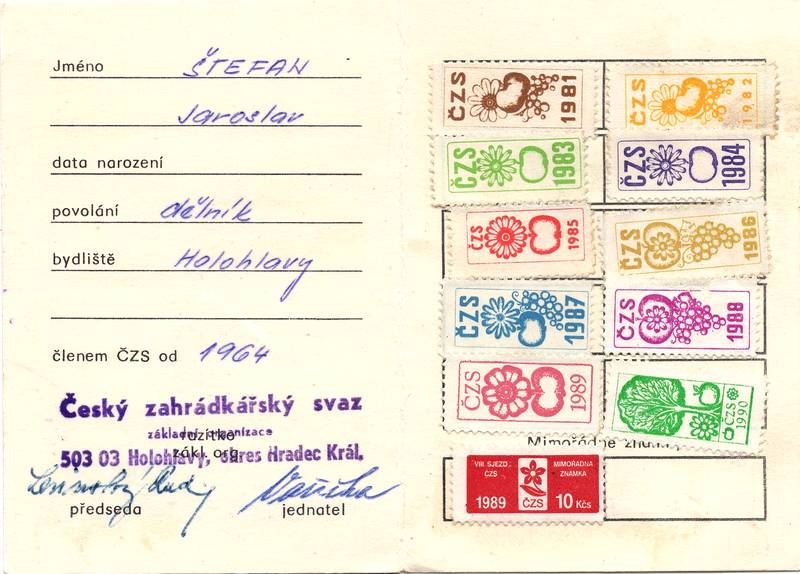 Jméno ŠTEFAN
Jaroslav
data narození
povolání dělník
bydliště Holohlavy
členem ČZS od 1964
Český zahrádkářský svaz
základní organizace
razítko
503 03 Holohlavy, okres Hradec Král.
zákl. org.
předseda
jednatel
ČZS 1981
ČZS 1982
ČZS 1983
ČZS 1984
ČZS 1985
ČZS 1986
ČZS 1987
ČZS 1988
ČZS 1989
ČZS 1990
Mimořádné
VIII SJEZD ČZS
MIMOŘÁDNÁ ZNÁMKA
1989
ČZS
10 Kčs